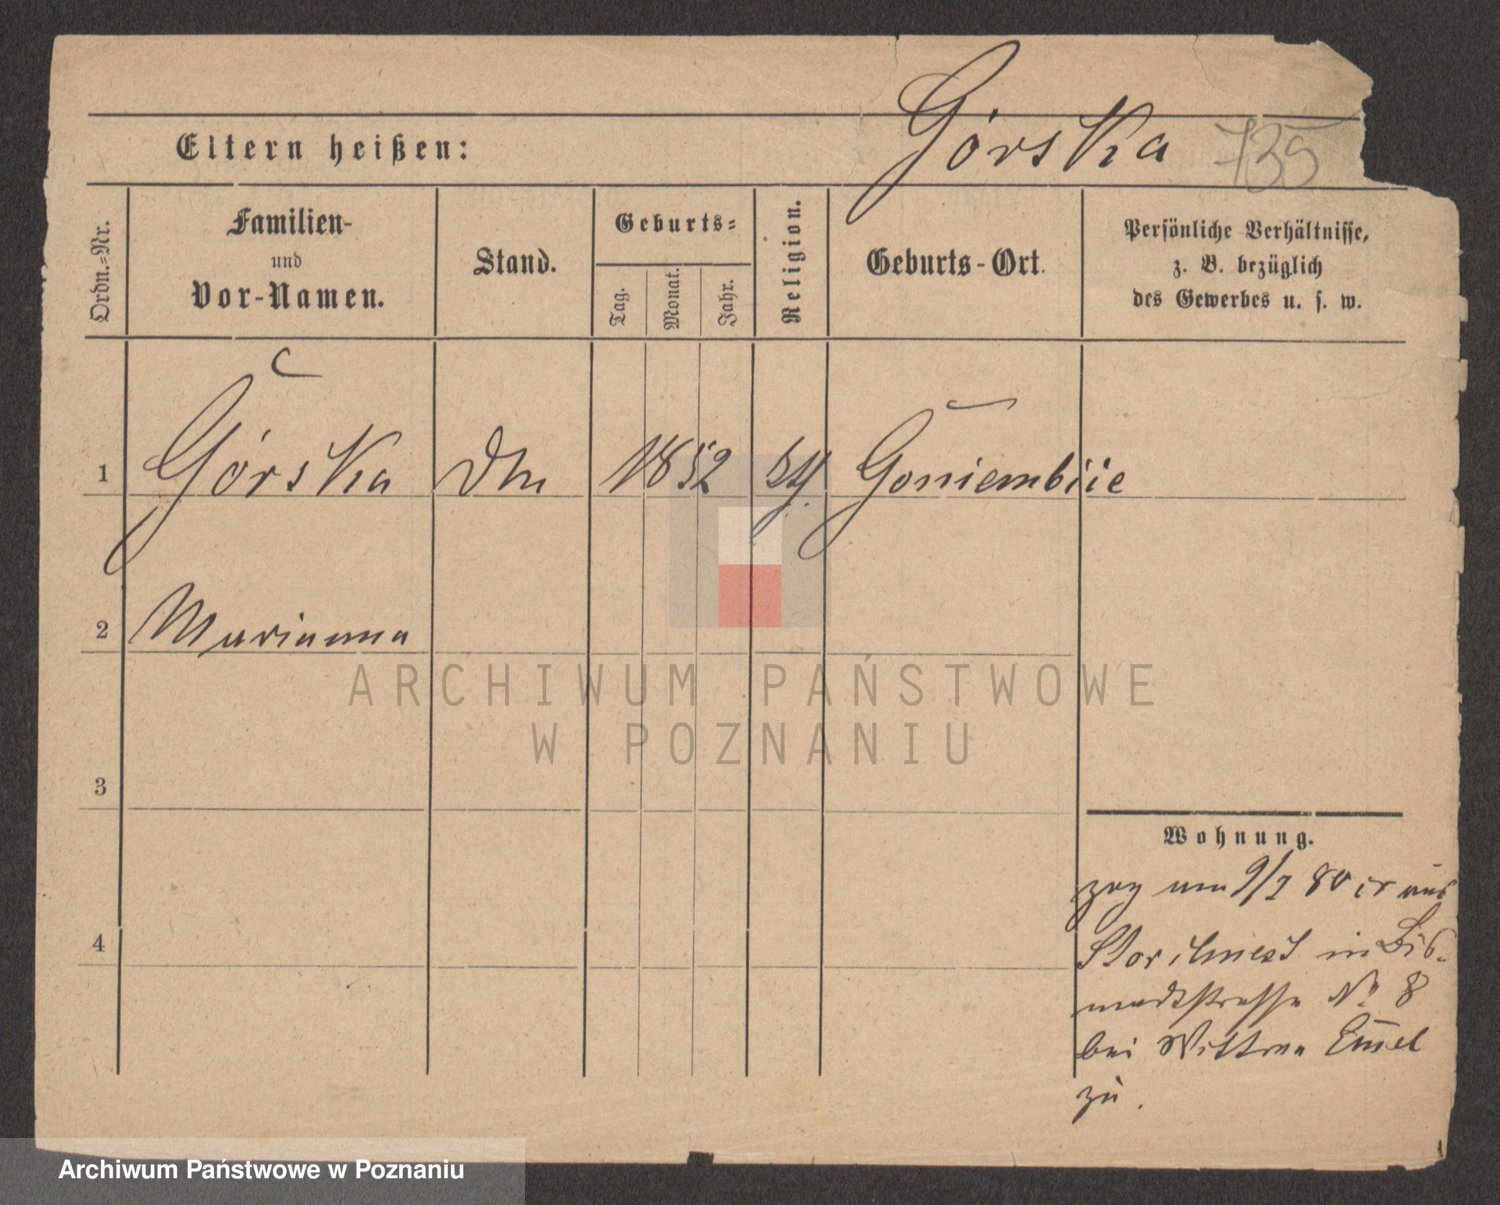 Górska 735
Eltern heißen:
Ordn.-Nr.
Familien-
und
Vor-Namen.
Stand.
Geburts-
Tag.
Monat.
Jahr.
Religion.
Geburts-Ort.
Persönliche Verhältnisse,
z. B. bezüglich
des Gewerbes u. s. w.
1 Górska 1852 Goniembiie
2 Marianna
3
4
Wohnung.
zog am 9/7 80 er aus
Storchnest in Bis-
markstrasse No 8
bei Wittwe
zu.
ARCHIWUM PAŃSTWOWE
W POZNANIU
Archiwum Państwowe w Poznaniu